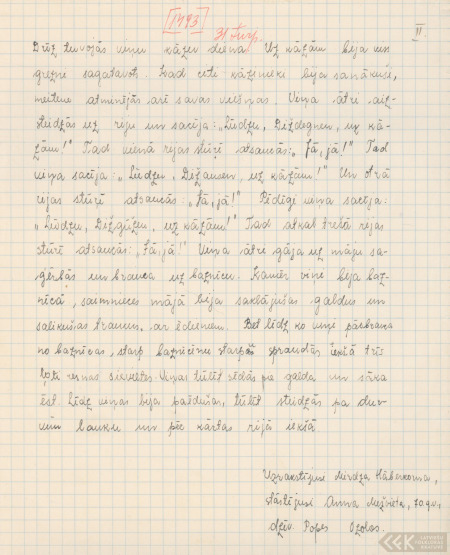 [1493]
31 Turp.
II.
Drīz tuvojās viņu kāzu diena. Uz kāzām bija viss
grezni sagatavots. Kad citi kāzenieki bija sanākuši,
meitene atminējās arī savas viešņas. Viņa ātri aiz-
steidzās uz riju un sacīja: „Lūdzu, Diždegnen, uz kā-
zām!" Tad vienā rijas stūrī atsaucās: „Jā, jā!" Tad
viņa sacīja: „Lūdzu, Dižausen, uz kāzām!" Un otrā
rijas stūrī atsaucās: „Jā, jā!" Pēdīgi viņa sacīja:
„Lūdzu, Dižgūžu, uz kāzām!" Tad atkal trešā rijas
stūrī atsaucās: „Jā, jā!" Viņa ātri gāja uz māju sa-
ģērbās un brauca uz baznīcu. Kamēr viņi bija baz-
nīcā, saimnieces mājā bija saklājušas galdus un
salikušas traukus ar ēdieniem. Bet līdz ko viņi pārbrauca
no baznīcas, starp baznīcēnu starpas spraudās iekšā trīs
ļoti vecas sievietes. Viņas tūlīt sēdās pie galda un sāka
ēst. Līdz viņas bija paēdušas, tūlīt steidzās pa dur-
vīm laukā un pēc kārtas rijā iekšā
Uzrakstījusi Mirdza Hāberkorna,
stāstījusi Anna
dzīv. Popes Ozolos.
LATVIEŠU
FOLKLORAS
KRĀTUVE